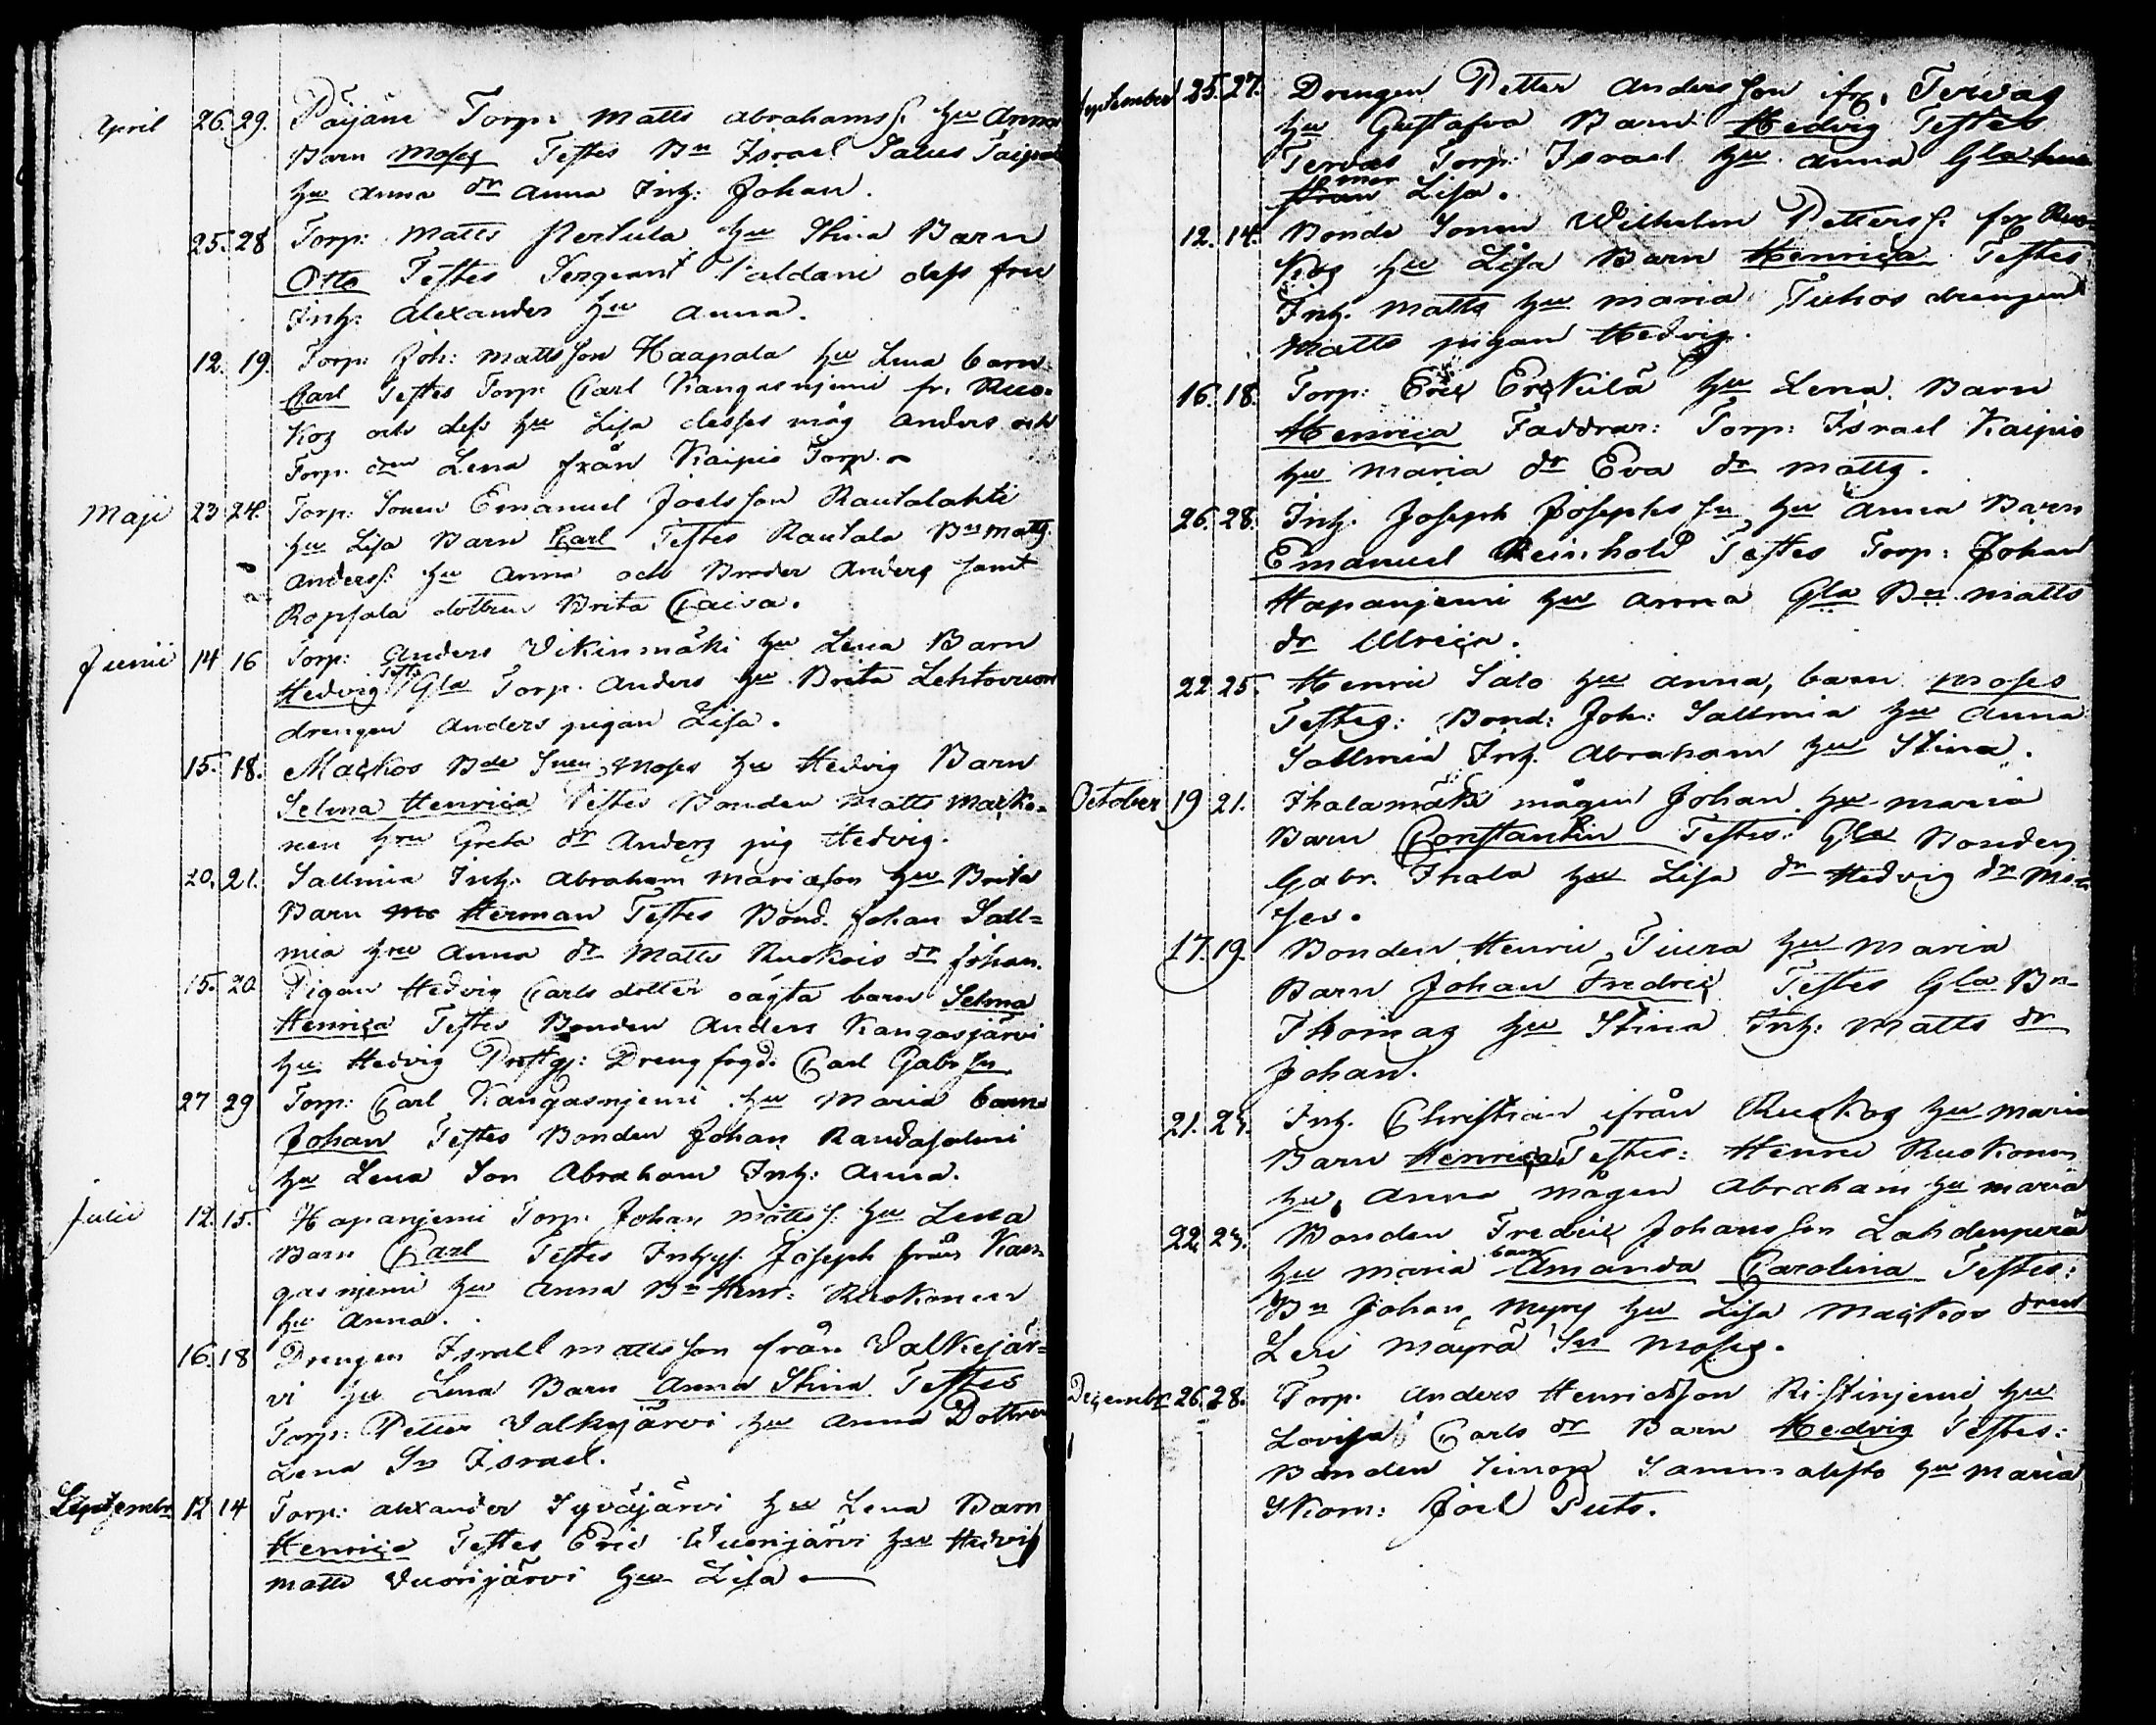 April 26. 29. Päijäni Torp: Matts Abrahamss. hu Anna
Barn Moses Testes Bn Israel Salus
hu Anna dr Anna Inh: Johan.
25. 28 Torp: Matts Pertula hu Stina Barn
Otto Testes Sergeant Valdani dess fru
Inh: Alexander hu Anna.
12. 19. Torp: Joh: Mattsson Haapala hu Lena barn
Carl Testes Torp: Carl Kangasnjemi fr. Ruo-
kos och dess hu Lisa desses måg Anders och
Torp. dren Lena från Kaipis Torp.
Maji 23 24. Torp: Sonen Emanuel Joelsson Rautalahti
hu Lisa Barn Carl Testes Rautala Bn Matts
Anderss: hu Anna och Broder Anders samt
Ropsala dottren Brita Caisa.
Junii 14 16 Torp: Anders Vikinmäki hu Lena Barn
Hedvig Tests Gla Torp. Anders hu Brita Lehtovuori
drengen Anders pigan Lisa.
15. 18. Mackos Bde Snen Moses hu Hedvig Barn
Selma Henrica Testes Bonden Matts Macko-
nen hru Greta dr Anders pig Hedvig.
20. 21. Sallmia Inh: Abraham Mariæson hu Brita
Barn Mo Herman Testes Bond. Johan Sall=
mia hru Anna dr Matts Ruokois dr Johan.
15. 20 Pigan Hedvig Carls dotter oägta barn Selma
Henrica Testes Bonden Anders Kangasjärvi
hu Hedvig Prestg: Drengfogd. Carl Gabrssn
27 29 Torp: Carl Kangasnjemi hu Maria barn
Johan Testes Bonden Johan Randasalmi
hu Lena Son Abraham Inh: Anna.
Julii 12. 15. Hapanjemi Torp. Johan Mattss: hu Lena
Barn Carl Testes Inhys. Joseph från Kan
gasnjemi hu Anna Bn Henr: Ruokonen
hu Anna.
16. 18 Drengen Israel Mattsson från Valkejär=
vi hu Lena Barn Anna Stina Testes
Torp: Petter Valkejärvi hu Anna Dottren
Lena Sn Israel.
Septembr 12 14 Torp: Alexander Syväjärvi hu Lena Barn
Henrica Testes Eric Vuorijärvi hu Hedvig
Matts Vuorijärvi hu Lisa
September 25. 27. Drengen Petter Andersson ifr. Tervas
hu Gustafva Barn Hedvig Testes
Tervas Torp: Israel hu Anna Gla
mor Lisa.
12. 14. Bonde Sonen Wilhelm Petterss: frn Ruo-
kos hu Lisa Barn Henrica Testes
Inh. Matts hu Maria Tuhos drengen
Matts pigan Hedvig.
16. 18. Torp: Eric Erkkilä hu Lena Barn
Henrica Faddrar: Torp: Israel Kaipio
hu Maria dr Eva dr Matts.
26. 28. Inh. Joseph Josephs sn hu Anna Barn
Emanuel Reinhold Testes Torp: Johan
Hapanjemi hu Anna Gla Bn Matts
dr Ulrica.
22 25. Henric Salo hu Anna, barn Moses
Testes: Bond: Joh: Sallmia hu Anna
Sallmia Inh. Abraham hu Stina.
October 19 21. Ihalamäki mågen Johan hu Maria
Barn Constantin Testes: Gla Bonden
Gabr. Ihala hu Lisa dr Hedvig dr Mo-
ses.
17. 19. Bonden Henric Tiura hu Maria
Barn Johan Fredric Testes Gla Bn
Thomas hu Stina Inh: Matts dr
Johan.
21. 23. Inh. Christian ifrån Ruokos hu Maria
Barn Henrica Testes: Henric Ruokonen
hu Anna mågen Abraham hu Maria
22. 23. Bonden Fredric Johansson Lahdenperä
hu Maria barn Amanda Carolina Testes:
Bn Johan Myry hu Lisa Mackos dren
Leni Mäyrä Sn Moses.
Decembr 26. 28. Torp. Anders Henricsson Ristinjemi hu
Lovisa Carls dr Barn Hedvig Testes:
Bonden Simon Sammalisto hu Maria
Skom: Joel Puts.